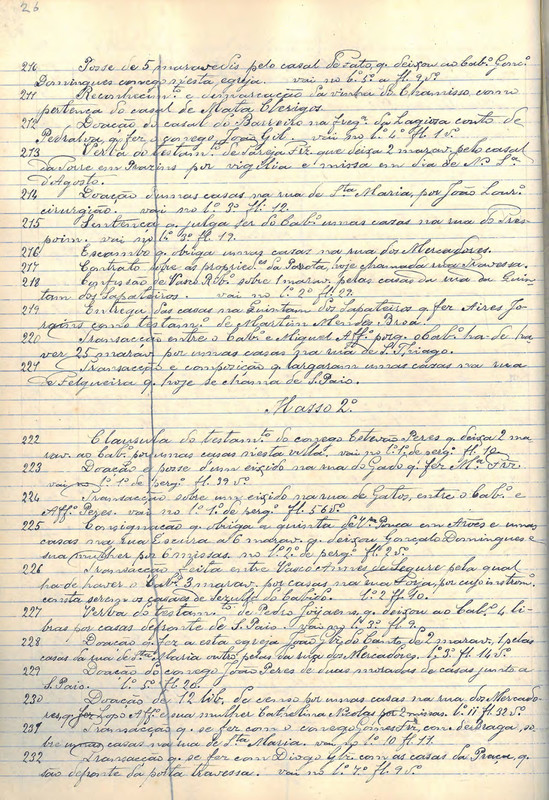 26
210 Posse de 5 maravedis pelo casal de Pato, q. deixou ao Cab.º Gonc.º
Domingues conego nesta egreja. vai no l.º 5º a fl. 9 5º
211 Reconhecim.º e demarcação da vinha do Chanisso, como
pertença do casal de Mata Clerigos.
212 Doação do casal do Barreiro na freg.ª da Lagiosa conto de
Pedralva q. fez o conego João Gil. vai no l.º 4º fl. 1 5º
213 Verba do testam.to de que deixa 2 marav. pelo casal
da Torre em Prazins por vigilia e missa em dia de N.ª S.ª
d'Agosto.
214 Doação d'umas casas na rua de S.ta Maria, por João Lour.º
cirurgião. vai no l.º 3º fl. 12.
215 Sentença q. julga ser do Cab.º umas casas na rua do
vai no l.º 3º fl. 19.
216 Escambo q. obriga umas casas na rua dos Mercadores.
217 Contrato sobre as propried.es da hoje chamada rua Travessa.
218 Confissão de Vasco Rib.º sobre 1 marav. pelas casas da rua da Quin-
tam dos Sapateiros. vai no l.º 2º fl. 29.
219 Entrega das casas na Quintam dos Sapateiros q. fez Aires Jo-
como testam.º de Martim Mendes Broa.
220 Transacção entre o Cab.º e Miguel Aff.º porq. o Cab.º ha de ha-
ver 25 marav. por umas casas na rua de S. Thiago.
221 Transacção e composição q. largaram umas casas na rua
de Felgueira q. hoje se chama de S. Paio.
Masso 2º
222 Clausula do testam.to do conego Estevão Peres q. deixa 2 ma-
rav. ao Cab.º por umas casas nesta villa. vai no l.º 1º de perg.º fl. 10.
223 Doação e posse d'um eixido na rua do Gado q. fez M.ª
vai no l.º 1º de perg.º fl. 39 5º
224 Transacção sobre um eixido na rua de Gatos, entre o Cab.º e
Aff.º Peres. vai no l.º 1º de perg.º fl. 56 5º
225 Consignação q. obriga a quinta de em Arões e umas
casas na rua Escura a 6 marav. q. deixou Gonçalo Domingues e
sua mulher por 6 missas. no l.º 2º de perg.º fl. 2 5º
226 Transacção feita entre Vasco Annes de Segure pela qual
ha de haver o Cab.º 3 marav. por casas na rua Forja, por cujo instrom.º
consta serem os casaes de Serzillo do Cabido. l.º 2 fl. 40.
227 Verba do testam.to de Pedro q. deixou ao Cab.º 4 li-
bras por casas defronte de S. Paio. vai no l.º 3º fl. 9.
228 Doação q. fez a esta egreja João do Canto, de 2 marav., 1 pelas
casas da rua de S.ta Maria outro pelas da rua dos Mercadores. l.º 3º fl. 14 5º
229 Doação do conego João Peres de duas moradas de casas junto a
S. Paio. l.º 5º fl. 26.
230 Doação de 12 lib. de censo por umas casas na rua dos Mercado-
res q. fez Lopo Aff.º e sua mulher Catherina Nicolas por 2 missas. l.º 11 fl. 32 5º
231 Transacção q. se fez com o conego con. de Braga, so-
bre umas casas na rua de S.ta Maria. vai no l.º 10 fl. 11.
232 Transacção q. se fez com Diogo Glz. com as casas da Praça, q.
são defronte da porta travessa. vai no l.º 7º fl. 9 5º